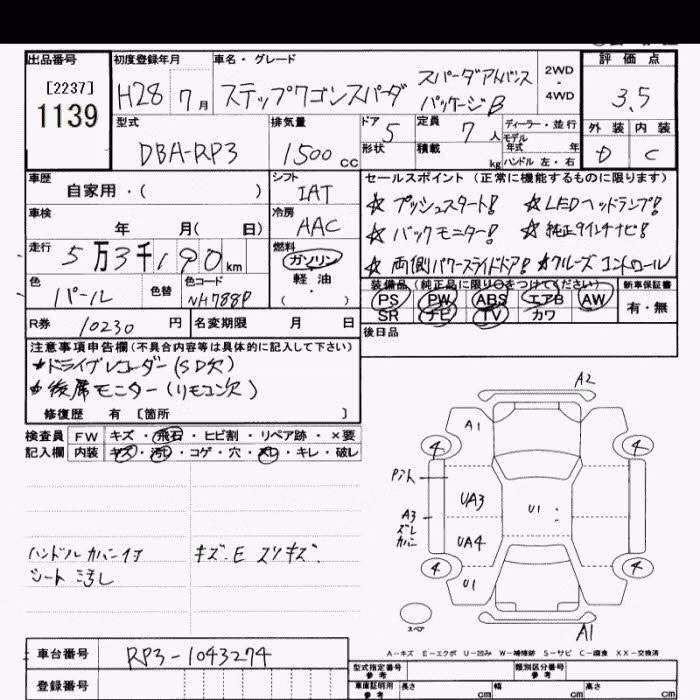 出品番号 初度登録年月 車名・グレード 2WD ・ 4WD 評価点
[2237] 1139 H28 7月 ステップワゴンスパーダ スパーダアドバンス パッケージB 3.5
型式 排気量 ドア 定員 ディーラー・並行 外装 内装
DBA-RP3 1500cc 5 7人 モデル年式 年 D C
形状 積載 kg ハンドル 左・右
車歴 シフト セールスポイント(正常に機能するものに限ります)
自家用・( ) IAT ☆プッシュスタート! ☆LEDヘッドランプ!
車検 冷房 ☆バックモニター! ☆純正9インチナビ!
年 月( 日) AAC
走行 燃料 ☆両側パワースライドドア! ☆クルーズコントロール
5万3千190km ガソリン
色 色替 色コード 軽油 装備品(純正品に限り○をつけてください) 新車保証書
パール NH788P ・( ) PS PW ABS エアB AW 有・無
SR ナビ TV カワ
R券 10230円 名変期限 月 日 後日品
注意事項申告欄(不具合内容等は具体的に記入して下さい)
★ドライブレコーダー(SD欠)
★後席モニター(リモコン欠)
修復歴 有 [箇所 ]
検査員 FW キズ・飛石・ヒビ割・リペア跡・×要
記入欄 内装 キズ・汚レ・コゲ・穴・スレ・キレ・破レ
A2
A1
4 4
UA3 U1
A3 ズレ カバー
UA4
ハンドルカバー付 キズ・E スリキズ
シート汚し
4 4
U1
スペア A1
A-キズ E-エクボ U-凹み W-補修跡 S-サビ C-腐食 XX-交換済
車台番号 RP3-1043274 型式指定番号 参考 類別区分番号 参考
登録番号 車庫証明用 参考 長さ cm 幅 cm 高さ cm